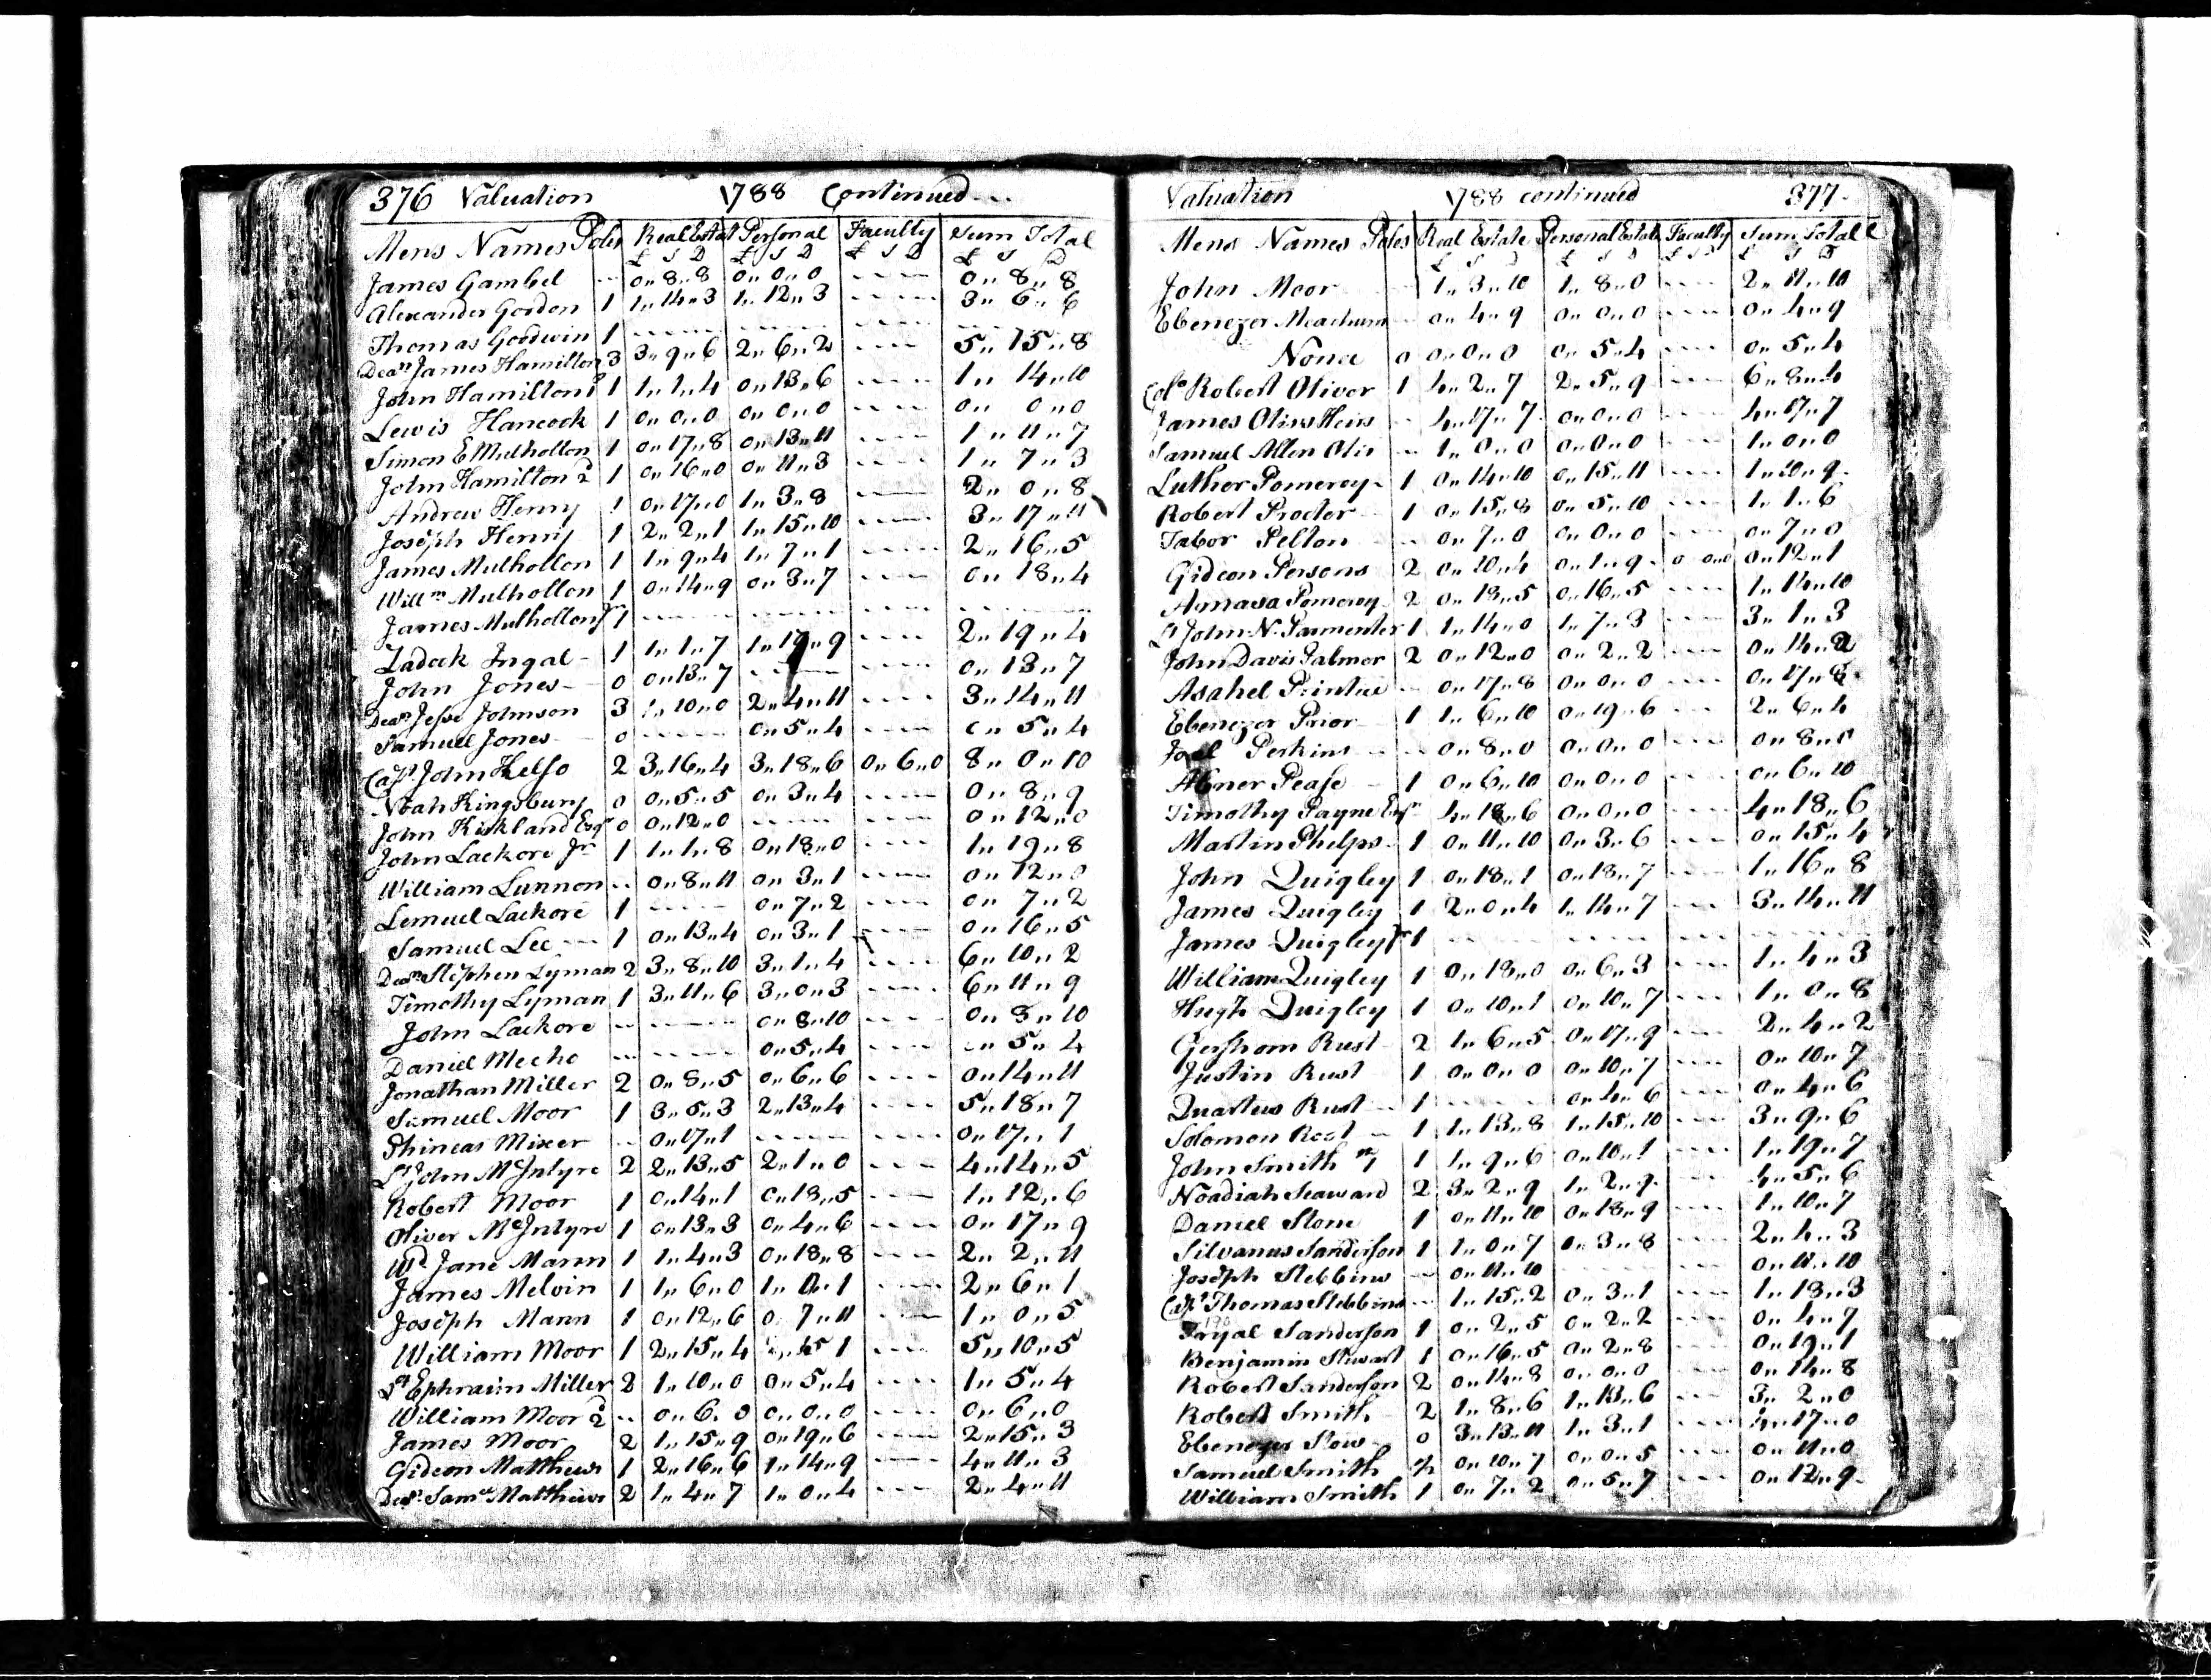 376 Valuation 1788 Continued
Mens Names Poles Real Estat Personal Faculty Sum Total
£ S D £ S D £ S D £ S D
James Gambel -- 0"8"8 0"0"0 ---- 0"8"8
Alexander Gordon 1 1"14"3 1"12"3 ---- 3"6"6
Thomas Goodwin 1 ---- ---- ---- ----
Deaⁿ James Hamilton 3 3"9"6 2"6"2 ---- 5"15"8
John Hamilton 1 1"1"4 0"13"6 ---- 1"14"10
Lewis Hancock 1 0"0"0 0"0"0 ---- 0"0"0
Simon E Mulhollon 1 0"17"8 0"13"11 ---- 1"11"7
John Hamilton 2 1 0"16"0 0"11"3 ---- 1"7"3
Andrew Henry 1 0"17"0 1"3"8 ---- 2"0"8
Joseph Henry 1 2"2"1 1"15"10 ---- 3"17"11
James Mulhollon 1 1"9"4 1"7"1 ---- 2"16"5
Willᵐ Mulhollon 1 0"14"9 0"3"7 ---- 0"18"4
James Mulhollon Jr 1 ---- ---- ---- ----
Zadock Ingal 1 1"1"7 1"19"9 ---- 2"19"4
John Jones 0 0"13"7 ---- ---- 0"13"7
Deaⁿ Jesse Johnson 3 1"10"0 2"4"11 ---- 3"14"11
Samuel Jones 0 ---- 0"5"4 ---- 0"5"4
Capᵗ John Kelso 2 3"16"4 3"18"6 0"6"0 8"0"10
Noah Kingsbury 0 0"5"5 0"3"4 ---- 0"8"9
John Kirkland Esqʳ 0 0"12"0 ---- ---- 0"12"0
John Lackore Jr 1 1"1"8 0"18"0 ---- 1"19"8
William Lunnon -- 0"8"11 0"3"1 ---- 0"12"0
Lemuel Lackore 1 ---- 0"7"2 ---- 0"7"2
Samuel Lee 1 0"13"4 0"3"1 ---- 0"16"5
Deaⁿ Stephen Lyman 2 3"8"10 3"1"4 ---- 6"10"2
Timothy Lyman 1 3"11"6 3"0"3 ---- 6"11"9
John Lackore -- ---- 0"8"10 ---- 0"8"10
Daniel Mecho -- ---- 0"5"4 ---- "5"4
Jonathan Miller 2 0"8"5 0"6"6 ---- 0"14"11
Samuel Moor 1 3"5"3 2"13"4 ---- 5"18"7
Phineas Mixer -- 0"17"1 ---- ---- 0"17"1
Lᵗ John McIntyre 2 2"13"5 2"1"0 ---- 4"14"5
Robert Moor 1 0"14"1 0"18"5 ---- 1"12"6
Oliver McIntyre 1 0"13"3 0"4"6 ---- 0"17"9
Wᵈ Jane Mann 1 1"4"3 0"18"8 ---- 2"2"11
James Melvin 1 1"6"0 1"0"1 ---- 2"6"1
Joseph Mann 1 0"12"6 0"7"11 ---- 1"0"5
William Moor 1 2"15"4 "15 1 ---- 5"10"5
Lᵗ Ephraim Miller 2 1"10"0 0"5"4 ---- 1"5"4
William Moor 2 -- 0"6"0 0"0"0 ---- 0"6"0
James Moor 2 1"15"9 0"19"6 ---- 2"15"3
Gideon Matthews 1 2"16"6 1"14"9 ---- 4"11"3
Deaⁿ Samˡ Matthews 2 1"4"7 1"0"4 ---- 2"4"11
Valuation 1788 continued 377
Mens Names Poles Real Estate Personal Estate Faculty Sum Total
£ S D £ S D £ S £ S D
John Moor 1"3"10 1"8"0 ---- 2"11"10
Ebenezer Meachum -- 0"4"9 0"0"0 ---- 0"4"9
None 0 0"0"0 0"5"4 ---- 0"5"4
Colº Robert Oliver 1 4"2"7 2"5"9 ---- 6"8"4
James Otis Heirs -- 4"17"7 0"0"0 4"17"7
Samuel Allen Otis -- 1"0"0 0"0"0 ---- 1"0"0
Luther Pomeroy 1 0"14"10 0"15"11 ---- 1"10"9
Robert Procter 1 0"15"8 0"5"10 ---- 1"1"6
Tabor Pelton -- 0"7"0 0"0"0 ---- 0"7"0
Gideon Persons 2 0"10"4 0"1"9 0 0"0 0"12"1
Amasa Pomeroy 2 0"18"5 0"16"5 ---- 1"14"10
Lᵗ John N. Parmenter 1 1"14"0 1"7"3 ---- 3"1"3
John Davis Palmer 2 0"12"0 0"2"2 ---- 0"14"2
Asahel Printice -- 0"17"8 0"0"0 ---- 0"17"8
Ebenezer Prior 1 1"6"10 0"19"6 ---- 2"6"4
Joel Perkins -- 0"8"0 0"0"0 ---- 0"8"0
Abner Pease 1 0"6"10 0"0"0 ---- 0"6"10
Timothy Payne Esqʳ 4"18"6 0"0"0 ---- 4"18"6
Martin Phelps 1 0"11"10 0"3"6 ---- 0"15"4
John Quigley 1 0"18"1 0"18"7 ---- 1"16"8
James Quigley 1 2"0"4 1"14"7 ---- 3"14"11
James Quigley Jr 1 ---- ---- ---- ----
William Quigley 1 0"18"0 0"6"3 ---- 1"4"3
Hugh Quigley 1 0"10"1 0"10"7 ---- 1"0"8
Gershom Rust 2 1"6"5 0"17"9 ---- 2"4"2
Justin Rust 1 0"0"0 0"10"7 ---- 0"10"7
Quartus Rust 1 ---- 0"4"6 ---- 0"4"6
Solomon Root 1 1"13"8 1"15"10 ---- 3"9"6
John Smith 1 1"9"6 0"10"1 ---- 1"19"7
Noadiah Seaward 2 3"2"9 1"2"9 ---- 4"5"6
Daniel Stone 1 0"11"10 0"18"9 ---- 1"10"7
Silvanus Sanderson 1 1"0"7 0"3"8 ---- 2"4"3
Joseph Stebbins -- 0"11"10 ---- ---- 0"11"10
Capᵗ Thomas Stebbins -- 1"15"2 0"3"1 ---- 1"18"3
Sanderson 1 0"2"5 0"2"2 ---- 0"4"7
Benjamin Stewart 1 0"16"5 0"2"8 ---- 0"19"1
Robert Sanderson 2 0"14"8 0"0"0 ---- 0"14"8
Robert Smith 2 1"8"6 1"13"6 ---- 3"2"0
Ebenezer Stow 0 3"13"11 1"3"1 ---- 4"17"0
Samuel Smith 0"10"7 0"0"5 ---- 0"11"0
William Smith 1 0"7"2 0"5"7 ---- 0"12"9